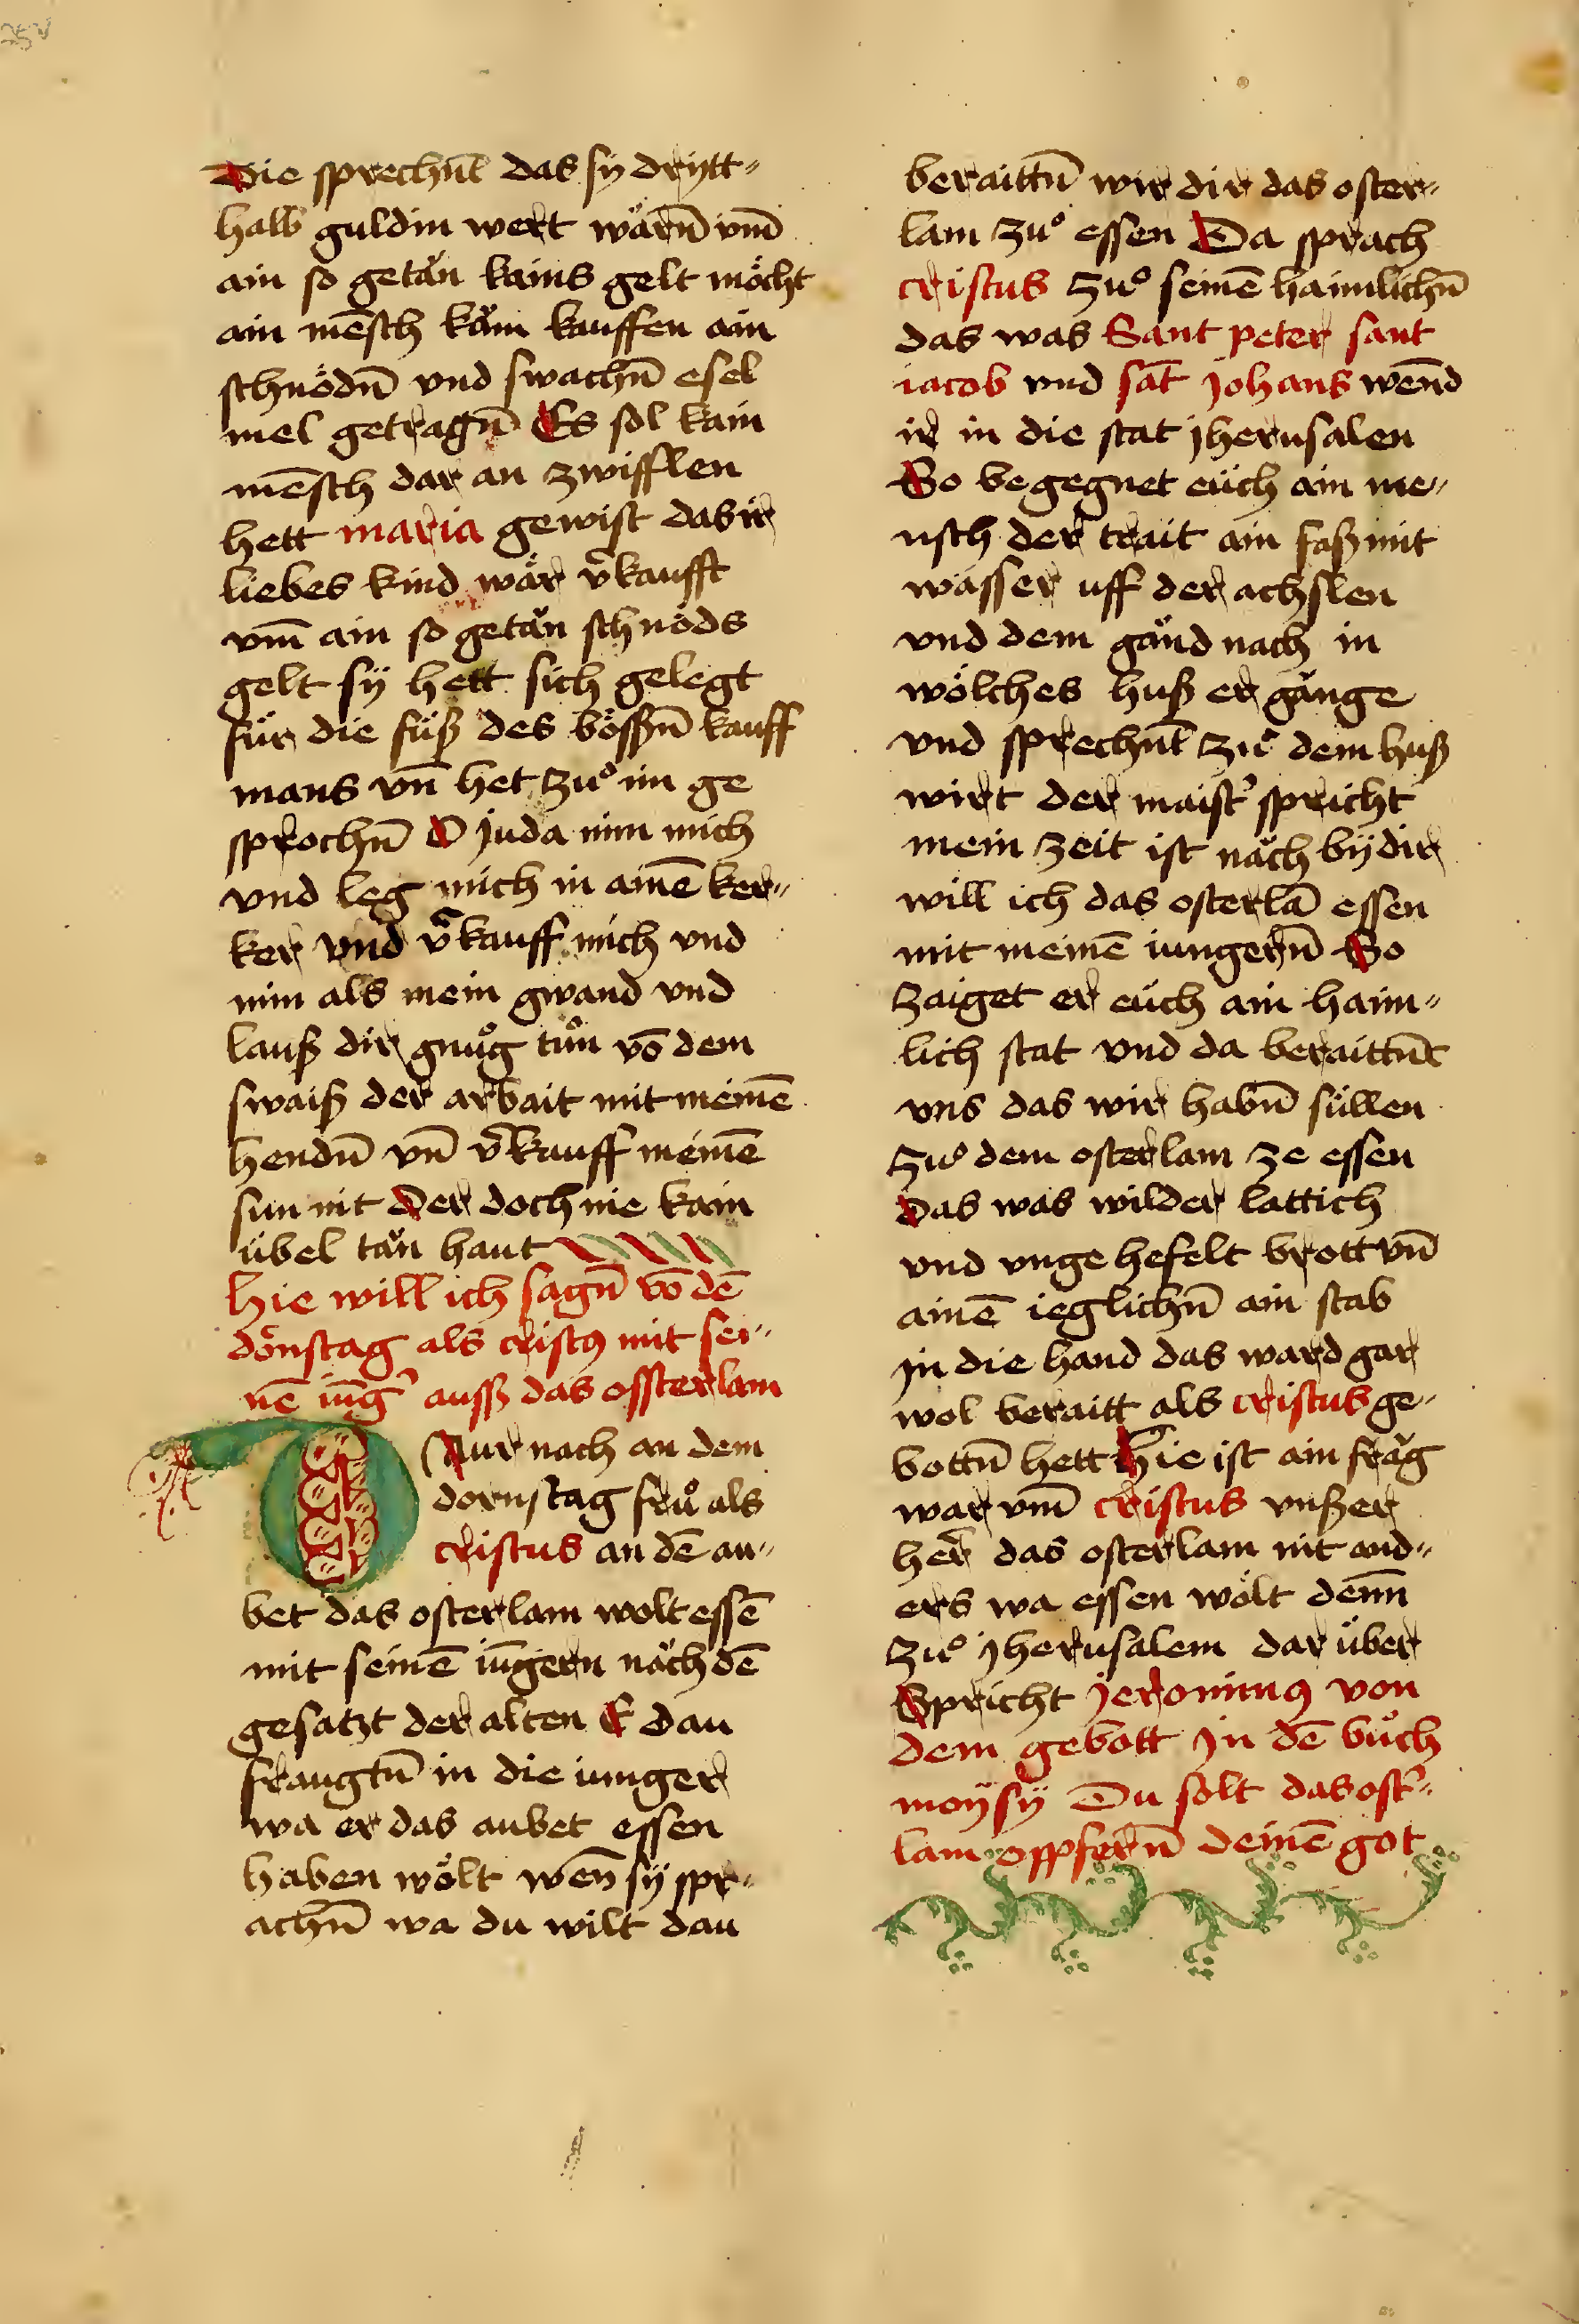 Die sprechnt̄ das sÿ drÿtt„
halb guldin wert wärn̄ vm̄
ain so getăn kains gelt möcht
ain mēsch kăm kauffen ain
schnödn̄ vnd swachn̄ esel
mel getragn̄ Es sol kain
mēsch dar an zwifflen
hett maria gewist das ir
liebes kind wär v̄kaufft
vm̄ ain so getăn schnöds
gelt sÿ hett sich gelegt
für die füß des bößn̄ kauff
mans vn̄ het zuͦ im ge
sprochn̄ O juda nim mich
vnd leg mich in ainē ker„
ker vnd v̄kauff mich vnd
nim als mein gwand vnd
lauß dir gnuͦg tuͦn vō dem
swaiß der arbait mit meinē
hendn̄ vn̄ v̄kauff meinē
sun nit Der doch nie kain
übel tăn haut
Hie will ich sagn̄ vō dē
dönstag als cristꝯ mit sei„
nē iūg' auss das ossterlam
Dar nach an dem
dornstag fruͦ als
cristus an dē au„
bet das osterlam wolt essē
mit seinē iūgern năch dē
gesatzt der alten E Dau
fraugtn̄ in die iunger
wa er das aubet essen
haben wölt wen̄ sÿ spr„
achn̄ wa du wilt dau
beraittn̄ wir dir das oster„
lam zuͦ essen Da sprach
cristus zuͦ seinē haimlichn̄
das was Sant peter sant
iacob vnd sāt johans wend̄
ir in die stat jherusalen
So begegnet eüch ain me„
nsch der trait ain faß mit
wasser uff der achslen
vnd dem gănd nach in
wölches huß er gănge
vnd sprechnt̄ zuͦ dem huß
wirt der maist' spricht
mein zeit ist năch bÿ dir
will ich das osterlā essen
mit meinē iungern̄ So
zaiget er eüch ain haim„
lich stat vnd da beraittnt̄
vns das wir habn̄ süllen
zuͦ dem osterlam ze essen
das was wilder lattich
vnd vngehefelt brott vn̄
ainē ieglichn̄ ain stab
jn die hand das ward gar
wol beraitt als cristus ge„
bottn̄ hett Hie ist ain frăg
war vm̄ cristus vnßer
her̄ das osterlam nit and„
ers wa essen wölt den̄n
zuͦ jherusalem dar über
Spricht jeronimꝯ von
dem gebott jn dē buͦch
moÿsÿ Du solt das ost'„
lam oppfern̄ deinē got